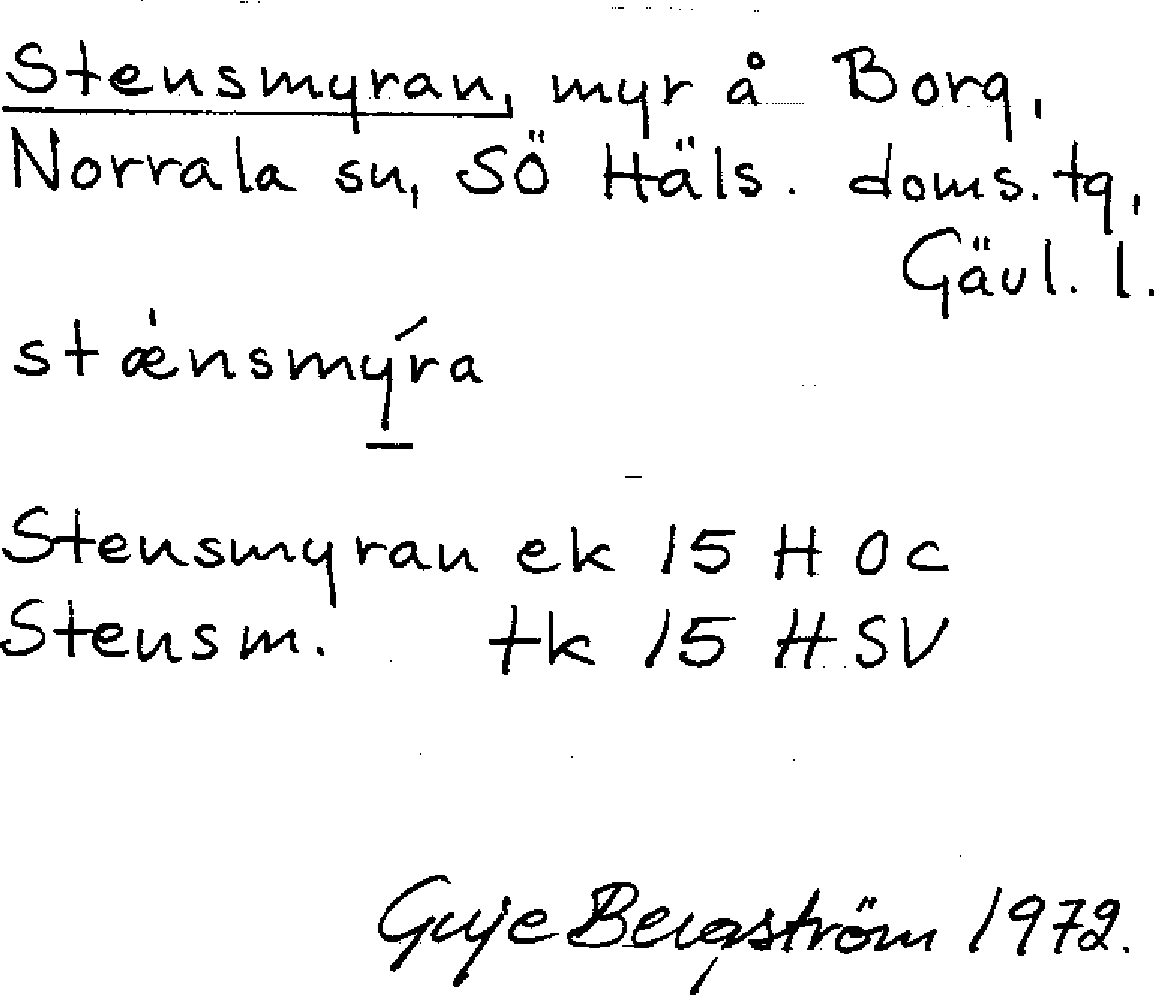 Stensmyran, myr å Borg,
Norrala sn, SÖ Häls. doms. tg,
Gävl. l.
stǽnsmýra
Stensmyran ek 15 H 0c
Stensm. tk 15 H SV
Guje Bergström 1972.